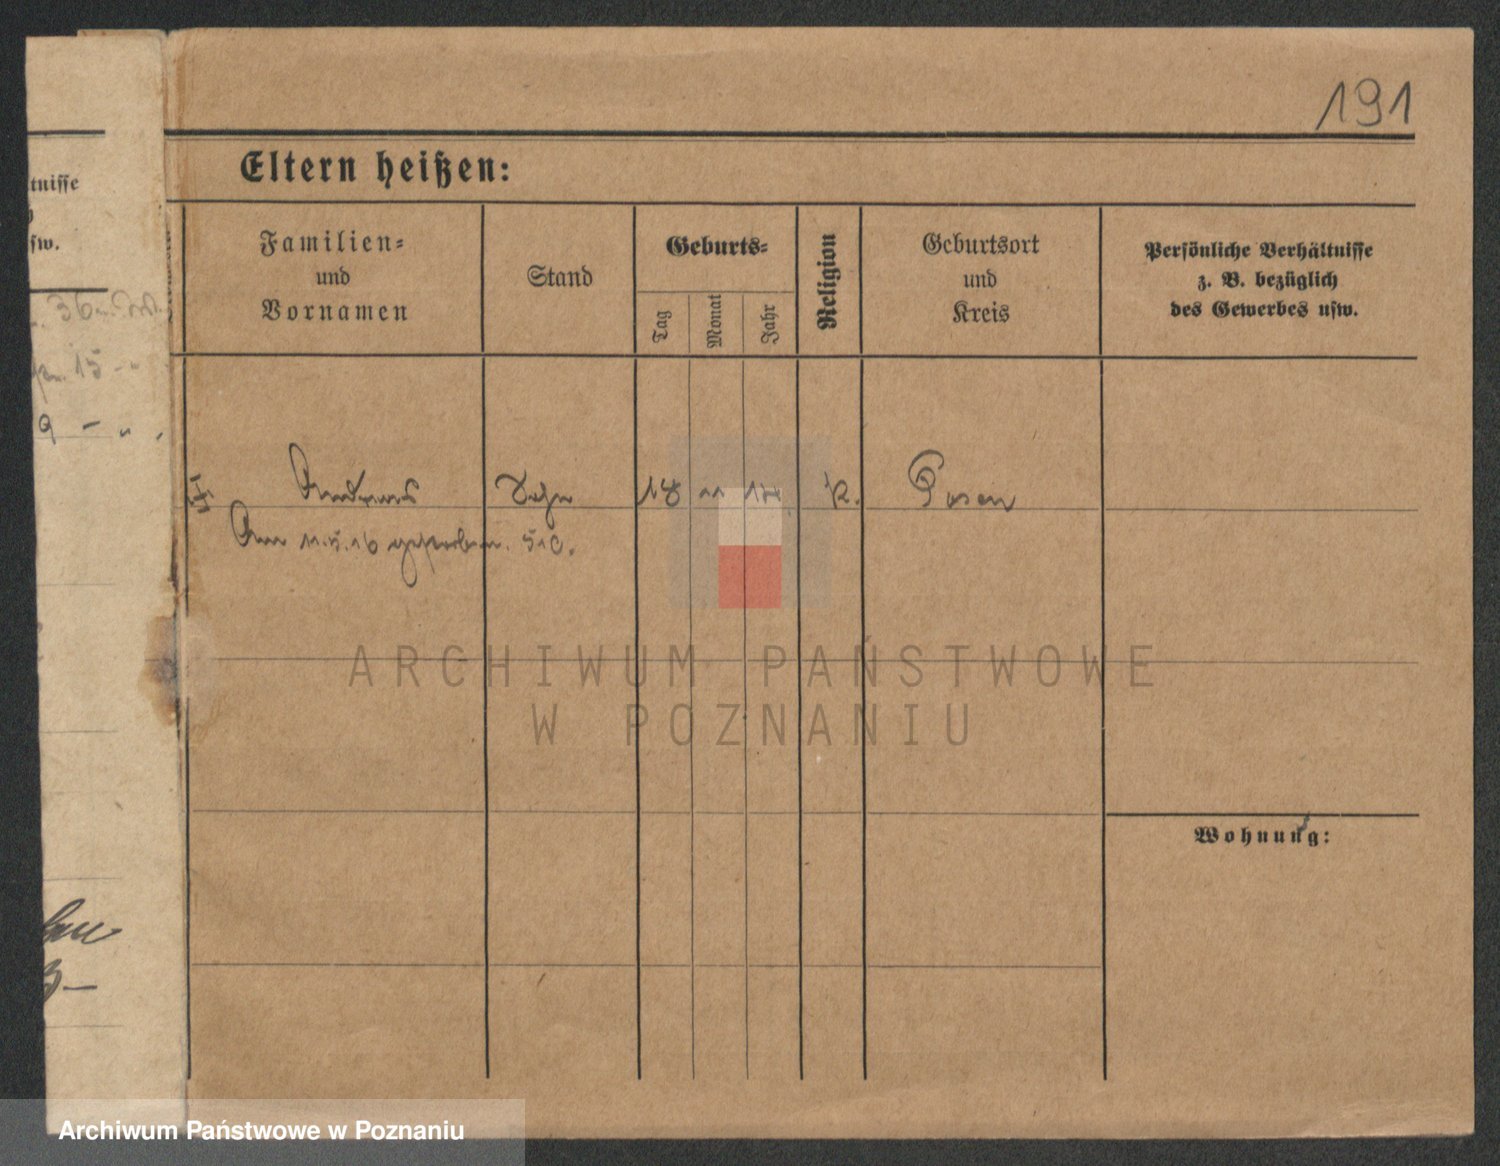 191
Eltern heißen:
tnisse
sw.
Familien=
und
Vornamen
Stand
Geburts=
Tag
Monat
Jahr
Religion
Geburtsort
und
Kreis
Persönliche Verhältnisse
z. B. bezüglich
des Gewerbes usw.
36
15 - "
9 - " .
Andreas Sohn 18 11 k. Posen
Am 11.5.16 gestorben.
ARCHIWUM PAŃSTWOWE
W POZNANIU
Wohnung:
3-
Archiwum Państwowe w Poznaniu